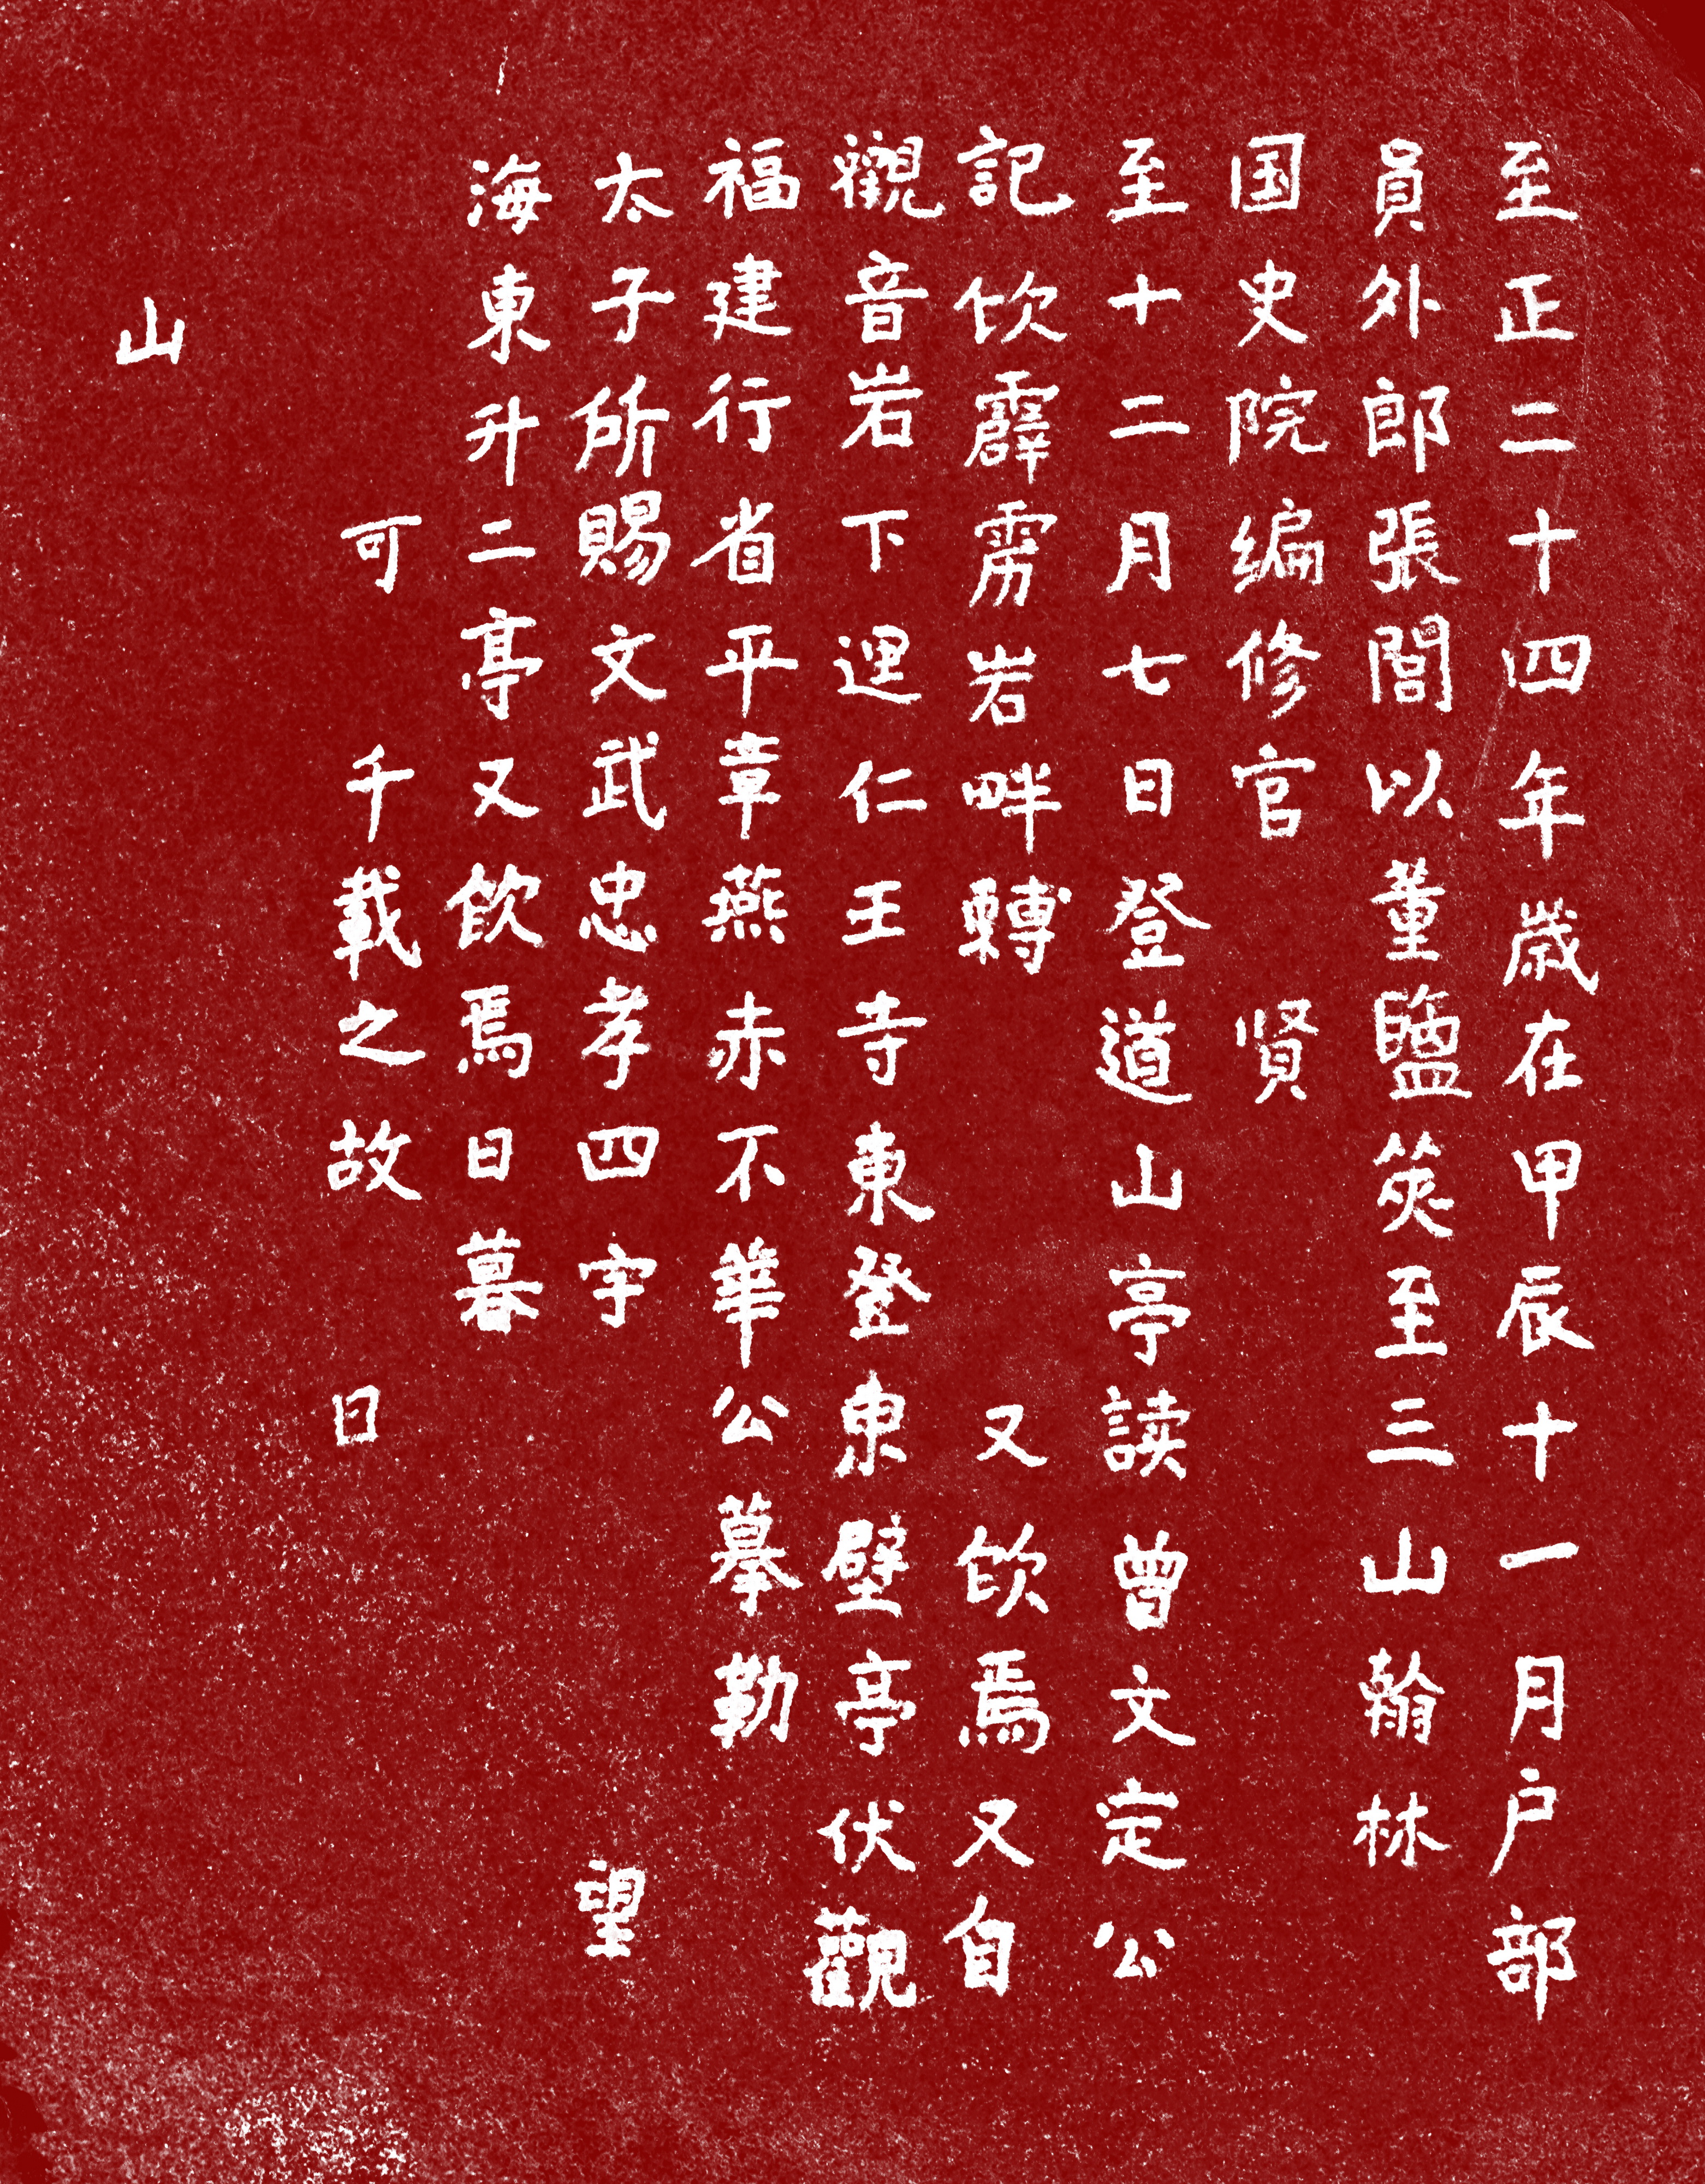 至正二十四年歲在甲辰十一月户部
員外郎張誾以董鹽筴至三山翰林
国史院编修官 贤
至十二月七日登道山亭读曾文定公
記飲霹雳岩畔轉 又飲焉又自
觀音岩下逕仁王寺東登東壁亭伏觀
福建行省平章燕赤不華公摹勒
太子所賜文武忠孝四字 望
海東升二亭又飲焉日暮
可 千載之故 日
山